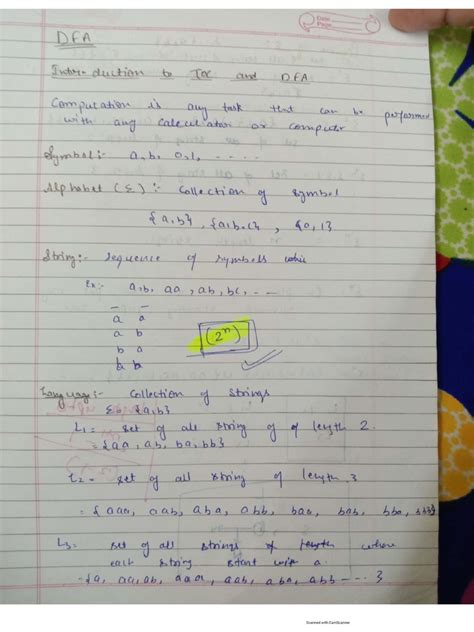 Date
Page
DFA
Introduction to TOC and DFA
Computation is any task that can be performed
with any calculator or computer
Symbol:- a, b, 0, 1, - - - -
Alphabet (Σ):- Collection of symbol
{a, b}, {a, b, c}, {0, 1}
String:- sequence of symbols
Ex:- a, b, aa, ab, bc, - - -
a a
a b
b a
b b
(2ⁿ)
Language:- Collection of strings
Σ = {a, b}
L1 = set of all string of of length 2.
= {aa, ab, ba, bb}
L2 = set of all string of length 3
= {aaa, aab, aba, abb, baa, bab, bba, bbb}
L3 = set of all strings of length where
each string start with a.
= {a, aa, ab, aaa, aab, aba, abb - - - }
Scanned with CamScanner